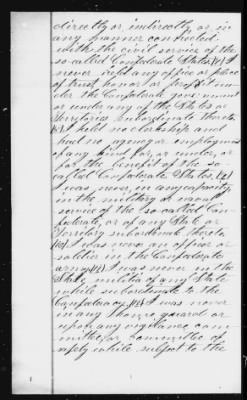 directly or indirectly, or in
any manner connected
with the civil service of the
so-called Confederate States, I
never held any office or place
of trust, honor or profit un-
der the Confederate government
or under any of the States or
Territories subordinate thereto
I held no clerkship and
had no agency or employment
of any kind for, or under, or
for the benefit of the so
called Confederate States,
I was never, in any capacity,
in the military or naval
service of the so called Con-
federate, or of any State or
Territory subordinate thereto
I was never an officer or
soldier in the Confederate
army, I was never in the
State militia of any State
while subordinate to the
Confederacy, I was never
in any home, guard or
upon any vigilance com-
mittee, or committee of
safety while subject to the